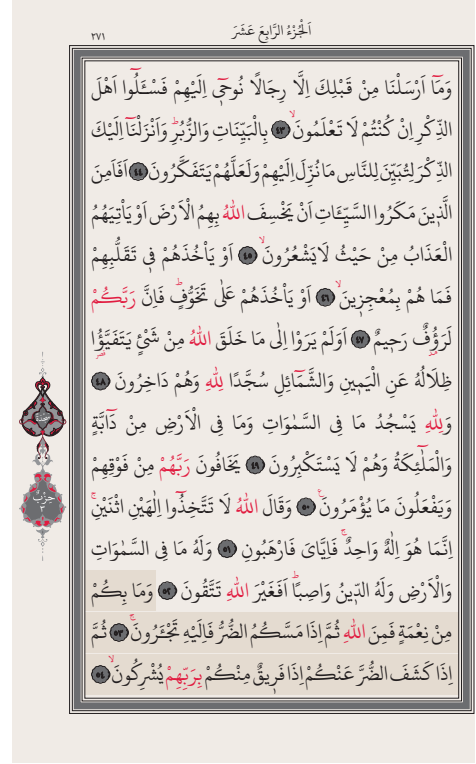 اَلْجُزْءُ الرَّابِعَ عَشَرَ
٢٧١
وَمَٓا اَرْسَلْنَا مِنْ قَبْلِكَ اِلَّا رِجَالًا نُوحٓي اِلَيْهِمْ فَسْـَٔلُٓوا اَهْلَ
الذِّكْرِ اِنْ كُنْتُمْ لَا تَعْلَمُونَۙ ٤٣ بِالْبَيِّنَاتِ وَالزُّبُرِۜ وَاَنْزَلْنَٓا اِلَيْكَ
الذِّكْرَ لِتُبَيِّنَ لِلنَّاسِ مَا نُزِّلَ اِلَيْهِمْ وَلَعَلَّهُمْ يَتَفَكَّرُونَ ٤٤ اَفَاَمِنَ
الَّذ۪ينَ مَكَرُوا السَّيِّـَٔاتِ اَنْ يَخْسِفَ اللّٰهُ بِهِمُ الْاَرْضَ اَوْ يَأْتِيَهُمُ
الْعَذَابُ مِنْ حَيْثُ لَا يَشْعُرُونَۙ ٤٥ اَوْ يَأْخُذَهُمْ ف۪ي تَقَلُّبِهِمْ
فَمَا هُمْ بِمُعْجِز۪ينَۙ ٤٦ اَوْ يَأْخُذَهُمْ عَلٰى تَخَوُّفٍۜ فَاِنَّ رَبَّكُمْ
لَرَؤُ۫فٌ رَح۪يمٌ ٤٧ اَوَلَمْ يَرَوْا اِلٰى مَا خَلَقَ اللّٰهُ مِنْ شَيْءٍ يَتَفَيَّؤُ۬ا
ظِلَالُهُ عَنِ الْيَم۪ينِ وَالشَّمَٓائِلِ سُجَّدًا لِلّٰهِ وَهُمْ دَاخِرُونَ ٤٨
وَلِلّٰهِ يَسْجُدُ مَا فِي السَّمٰوَاتِ وَمَا فِي الْاَرْضِ مِنْ دَٓابَّةٍ
وَالْمَلٰٓئِكَةُ وَهُمْ لَا يَسْتَكْبِرُونَ ٤٩ يَخَافُونَ رَبَّهُمْ مِنْ فَوْقِهِمْ
وَيَفْعَلُونَ مَا يُؤْمَرُونَ ۟ ٥٠ وَقَالَ اللّٰهُ لَا تَتَّخِذُٓوا اِلٰهَيْنِ اثْنَيْنِۚ
اِنَّمَا هُوَ اِلٰهٌ وَاحِدٌۚ فَاِيَّايَ فَارْهَبُونِ ٥١ وَلَهُ مَا فِي السَّمٰوَاتِ
وَالْاَرْضِ وَلَهُ الدّ۪ينُ وَاصِبًاۜ اَفَغَيْرَ اللّٰهِ تَتَّقُونَ ٥٢ وَمَا بِكُمْ
مِنْ نِعْمَةٍ فَمِنَ اللّٰهِ ثُمَّ اِذَا مَسَّكُمُ الضُّرُّ فَاِلَيْهِ تَجْـَٔرُونَۚ ٥٣ ثُمَّ
اِذَا كَشَفَ الضُّرَّ عَنْكُمْ اِذَا فَر۪يقٌ مِنْكُمْ بِرَبِّهِمْ يُشْرِكُونَۙ ٥٤
حِزْبٌ